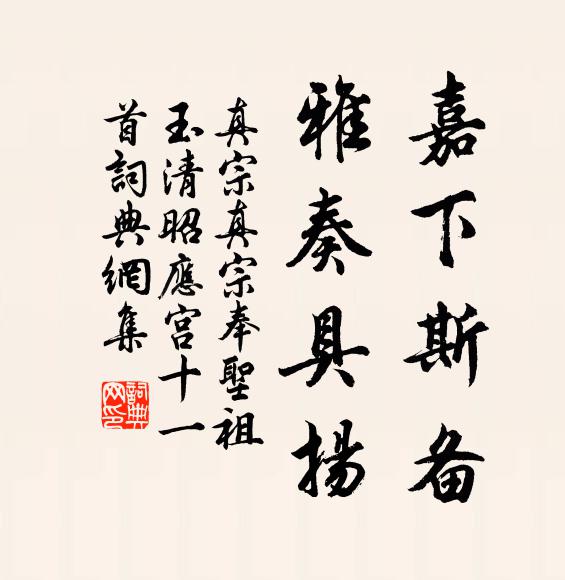 嘉下斯备
雅奏具揚
真宗真宗奉聖祖
玉清昭應宮十一
首詞典網集
詞典
网印